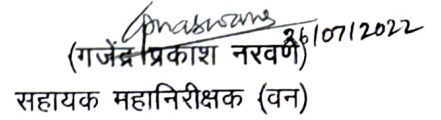 26/07/2022
(गजेंद्र प्रकाश नरवणे)
सहायक महानिरीक्षक (वन)